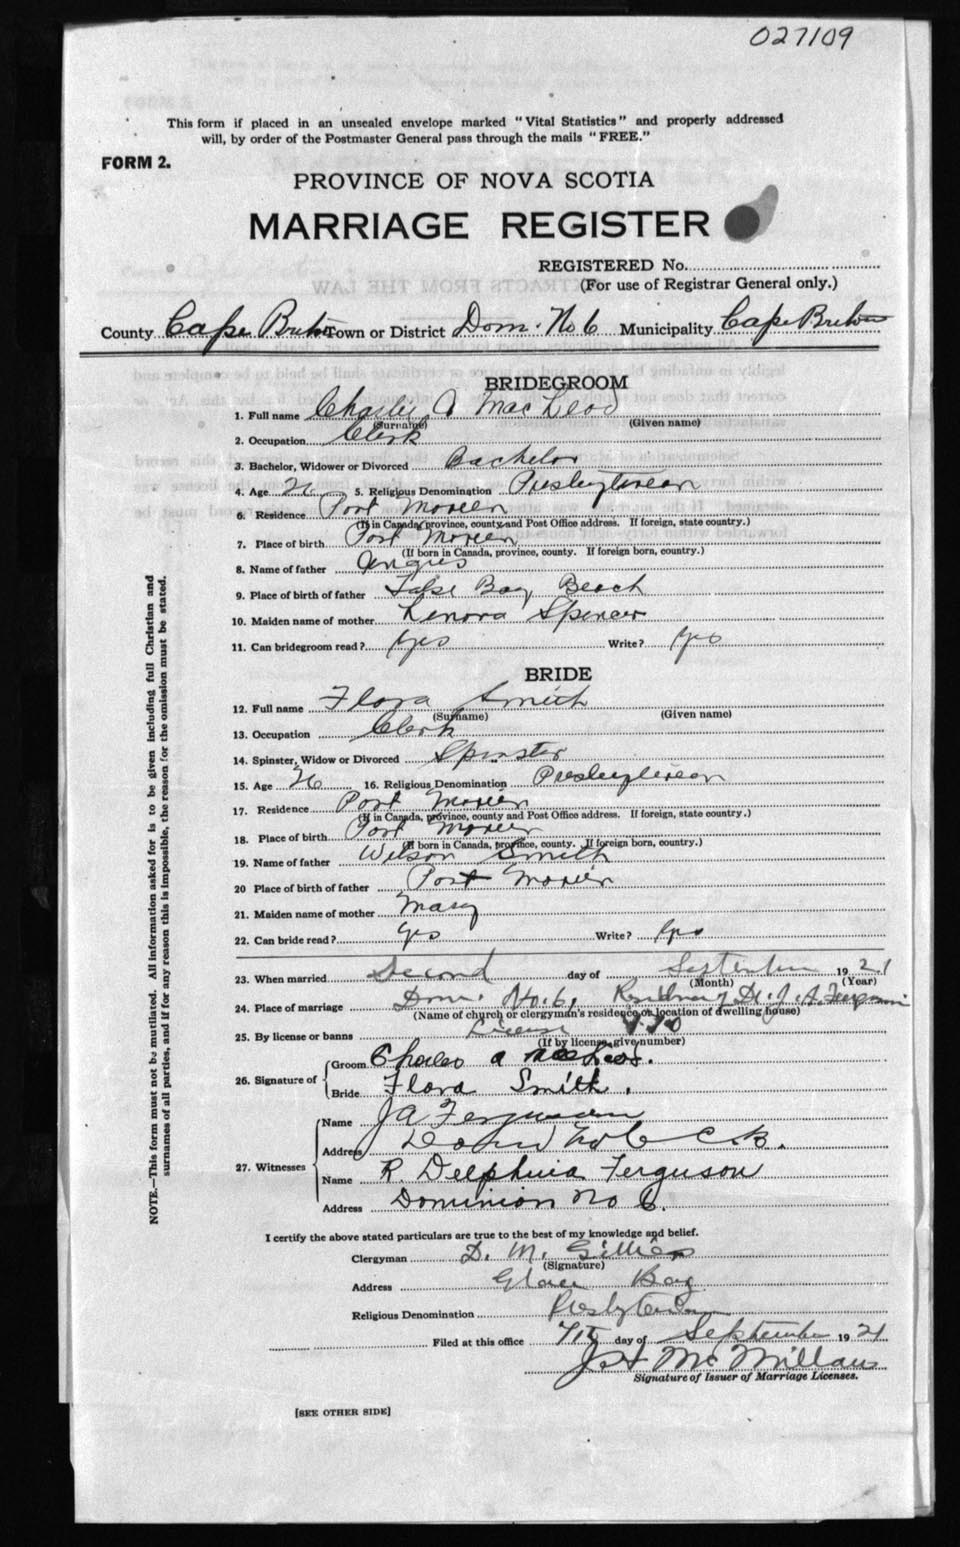 027109
This form if placed in an unsealed envelope marked "Vital Statistics" and properly addressed
will, by order of the Postmaster General pass through the mails "FREE."
FORM 2.
PROVINCE OF NOVA SCOTIA
MARRIAGE REGISTER
REGISTERED No.
(For use of Registrar General only.)
County Cape Breton Town or District Dom. No 6 Municipality Cape Breton
BRIDEGROOM
1. Full name Charles A MacLeod
(Surname) (Given name)
2. Occupation Clerk
3. Bachelor, Widower or Divorced Bachelor
4. Age 5. Religious Denomination Presbyterean
6. Residence Port Morien
(If in Canada, province, county and Post Office address. If foreign, state country.)
7. Place of birth Port Morien
(If born in Canada, province, county. If foreign born, country.)
8. Name of father Angus
9. Place of birth of father False Bay Beach
10. Maiden name of mother Lenora Spencer
11. Can bridegroom read? Yes Write? Yes
BRIDE
12. Full name Flora Smith
(Surname) (Given name)
13. Occupation Clerk
14. Spinster, Widow or Divorced Spinster
15. Age 26 16. Religious Denomination Presbyterean
17. Residence Port Morien
(If in Canada, province, county and Post Office address. If foreign, state country.)
18. Place of birth Port Morien
(If born in Canada, province, county. If foreign born, country.)
19. Name of father Wilson Smith
20 Place of birth of father Port Morien
21. Maiden name of mother Mary
22. Can bride read? Yes Write? Yes
23. When married Second day of September 1921
(Month) (Year)
24. Place of marriage Dom. No. 6, Residence of J. A. Ferguson
(Name of church or clergyman's residence or location of dwelling house)
25. By license or banns License
(If by license, give number)
26. Signature of Groom Charles A MacLeod.
Bride Flora Smith.
27. Witnesses Name J A Ferguson
Address Dom No 6 C.B.
Name R. Delphina Ferguson
Address Dominion No 6.
I certify the above stated particulars are true to the best of my knowledge and belief.
Clergyman D. M. Gillies
(Signature)
Address Glace Bay
Religious Denomination Presbyterian
Filed at this office 7th day of September 1921
McMillan
Signature of Issuer of Marriage Licenses.
[SEE OTHER SIDE]
NOTE.—This form must not be mutilated. All information asked for is to be given including full Christian and
surnames of all parties, and if for any reason this is impossible, the reason for the omission must be stated.